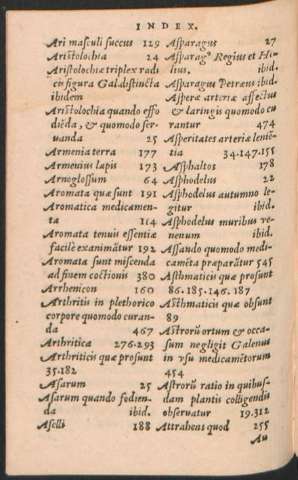 INDEX.
Ari masculi succus 129
Aristolochia 24
Aristolochiæ triplex radi
cis figura Gal. distincta
ibidem
Aristolochia quando effo
diēda, & quomodo ser-
uanda 25
Armenia terra 177
Armenius lapis 173
Arnoglossum 64
Aromata quæ sunt 191
Aromatica medicamen-
ta 114
Aromata tenuis essentiæ
facilè exanimātur 192
Aromata sunt miscenda
ad finem coctionis 380
Arrhenicon 160
Arthritis in plethorico
corpore quomodo curan-
da 467
Arthritica 276.293
Arthriticis quæ prosunt
35.182
Asarum 25
Asarum quando fodien-
da ibid.
Aselli 188
Asparagus 27
Asparagꝰ Regius et Hi-
lius. ibid.
Asparagus Petræus ibid.
Asperæ arteriæ affectus
& laringis quomodo cu
rantur 474
Asperitates arteriæ leniē-
tia 34.147.155
Asphaltos 178
Asphodelus 22
Asphodelus autumno le-
gitur ibid.
Asphodelus muribus ve-
nenum ibid.
Assando quomodo medi-
camēta præparātur 545
Asthmaticis quæ prosunt
86.185.146.187
Asthmaticis quæ obsunt
89
Astrorū ortum & occa-
sum negligit Galenus
in vsu medicamētorum
454
Astrorū ratio in quibus-
dam plantis colligendis
obseruatur 19.312
Attrahens quod 255
Au